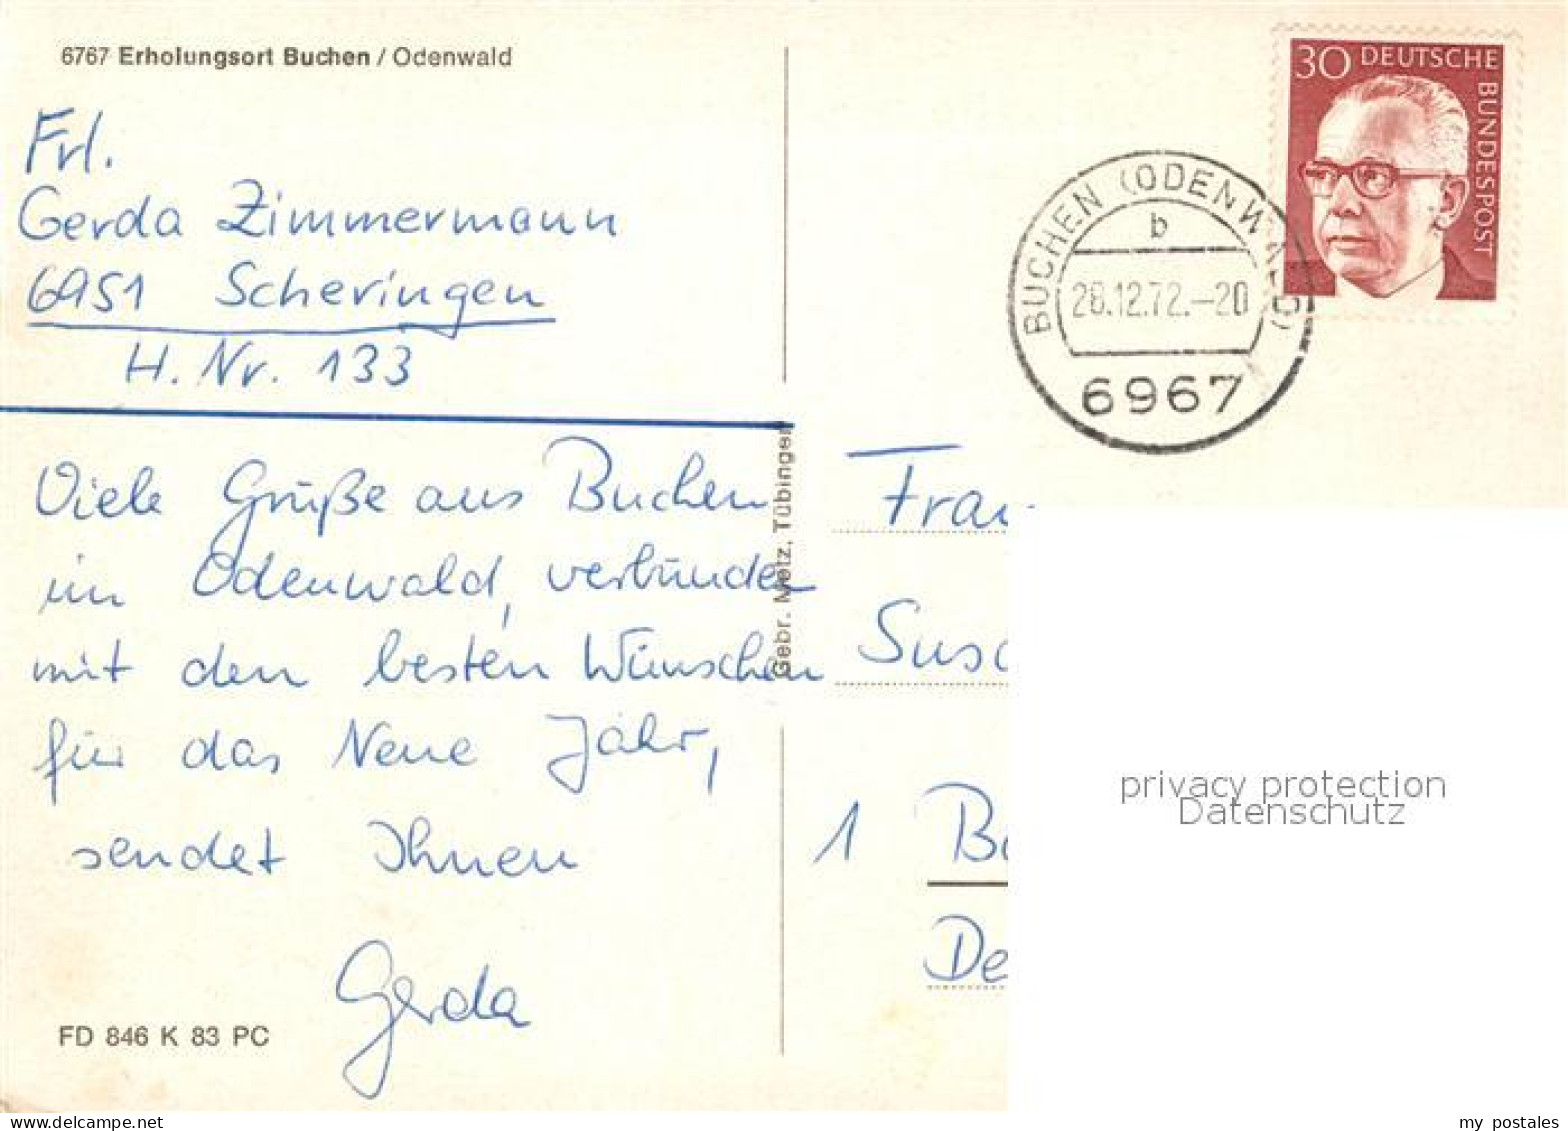 6767 Erholungsort Buchen / Odenwald
Frl.
Gerda Zimmermann
6951 Scheringen
H. Nr. 133
Viele Grüße aus Buchen
im Odenwald, verbunden
mit den besten Wünschen
für das Neue Jahr,
sendet Ihnen
Gerda
FD 846 K 83 PC
Gebr. Metz, Tübingen
30 DEUTSCHE
BUNDESPOST
BUCHEN (ODENWALD)
b
28.12.72.-20
6967
Frau
Susa
1 Be
De
privacy protection
Datenschutz
my postales